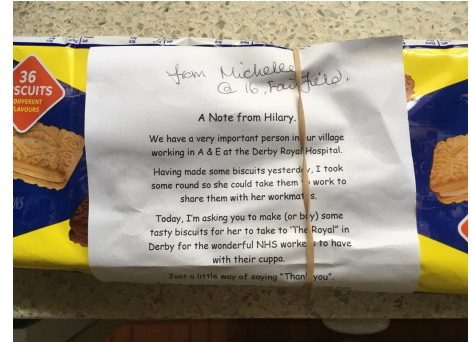 36
SCUITS
DIFFERENT
LAVOURS
from Michelle
@ 16, Fairfield.
A Note from Hilary.
We have a very important person in our village
working in A & E at the Derby Royal Hospital.
Having made some biscuits yesterday, I took
some round so she could take them to work to
share them with her workmates.
Today, I'm asking you to make (or buy) some
tasty biscuits for her to take to 'The Royal" in
Derby for the wonderful NHS workers to have
with their cuppa.
Just a little way of saying "Thank you".